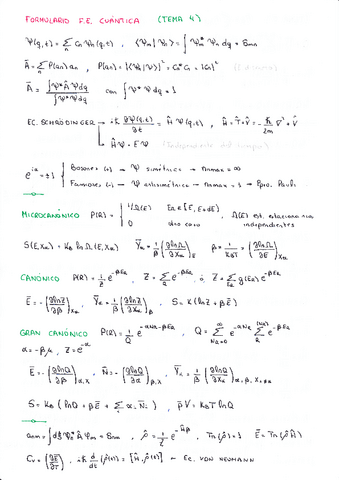 FORMULARIO F.E. CUÁNTICA (TEMA 4)
Ψ(q,t) = Σₙ Cₙ Ψₙ(q) , ⟨Ψₘ|Ψₙ⟩ = ∫Ψₘ* Ψₙ dq = δₘₙ
Ā = Σₙ P(aₙ) aₙ , P(aₙ) = |⟨Ψₙ|Ψ⟩|² = Cₙ* Cₙ = |Cₙ|²
Ā = ∫Ψ* Â Ψ dq / ∫Ψ* Ψ dq con ∫Ψ* Ψ dq = 1
EC. SCHRÖDINGER → iℏ ∂Ψ(q,t)/∂t = Ĥ Ψ(q,t) , Ĥ = T̂ + V̂ = -ℏ/2m ∇² + V̂
↳ Ĥ Ψ = E Ψ (Independiente del tiempo)
e^{iα} = ±1 { Bosones (+) → Ψ simétrica → nmax = ∞
Fermiones (-) → Ψ antisimétrica → nmax = 1 → Ppio. Pauli
MICROCANÓNICO P(R) = { 1/Ω(E) ER ∈ [E, E+dE]
0 otro caso , Ω(E) est. estacionarios independientes
S(E,Xα) = KB ln Ω(E,Xα) Ȳα = 1/β (∂lnΩ/∂Xα)_E β = 1/KBT = (∂lnΩ/∂E)_Xα
CANÓNICO P(R) = 1/Z e^{-βER} , Z = Σ_R e^{-βER} ó Z = Σ_ER g(ER) e^{-βER}
Ē = -(∂lnZ/∂β)_Xα , Ȳα = 1/β (∂lnZ/∂Xα)_β , S = K (lnZ + βĒ)
GRAN CANÓNICO P(R) = 1/Q e^{-αNR - βER} , Q = Σ_{NR=0}^{∞} e^{-αNR} Σ_R^{(NR)} e^{-βER}
α = -βμ , Z = e^{-α}
Ē = -(∂lnQ/∂β)_{α,X} , N̄ = -(∂lnQ/∂α)_{β,X} , Ȳα = 1/β (∂lnQ/∂Xα)_{α,β,Xβ≠α}
S = KB ( lnQ + βĒ + Σ αᵢ N̄ᵢ ) , p̄V = KBT lnQ
, ρ̂ = 1/Z e^{-Ĥβ} , Tr(ρ̂) = 1 Ē = Tr(ρ̂Ĥ)
Cv = (∂Ē/∂T) , iℏ d/dt (ρ̂(t)) = [Ĥ, ρ̂(t)] ~ Ec. VON NEUMANN